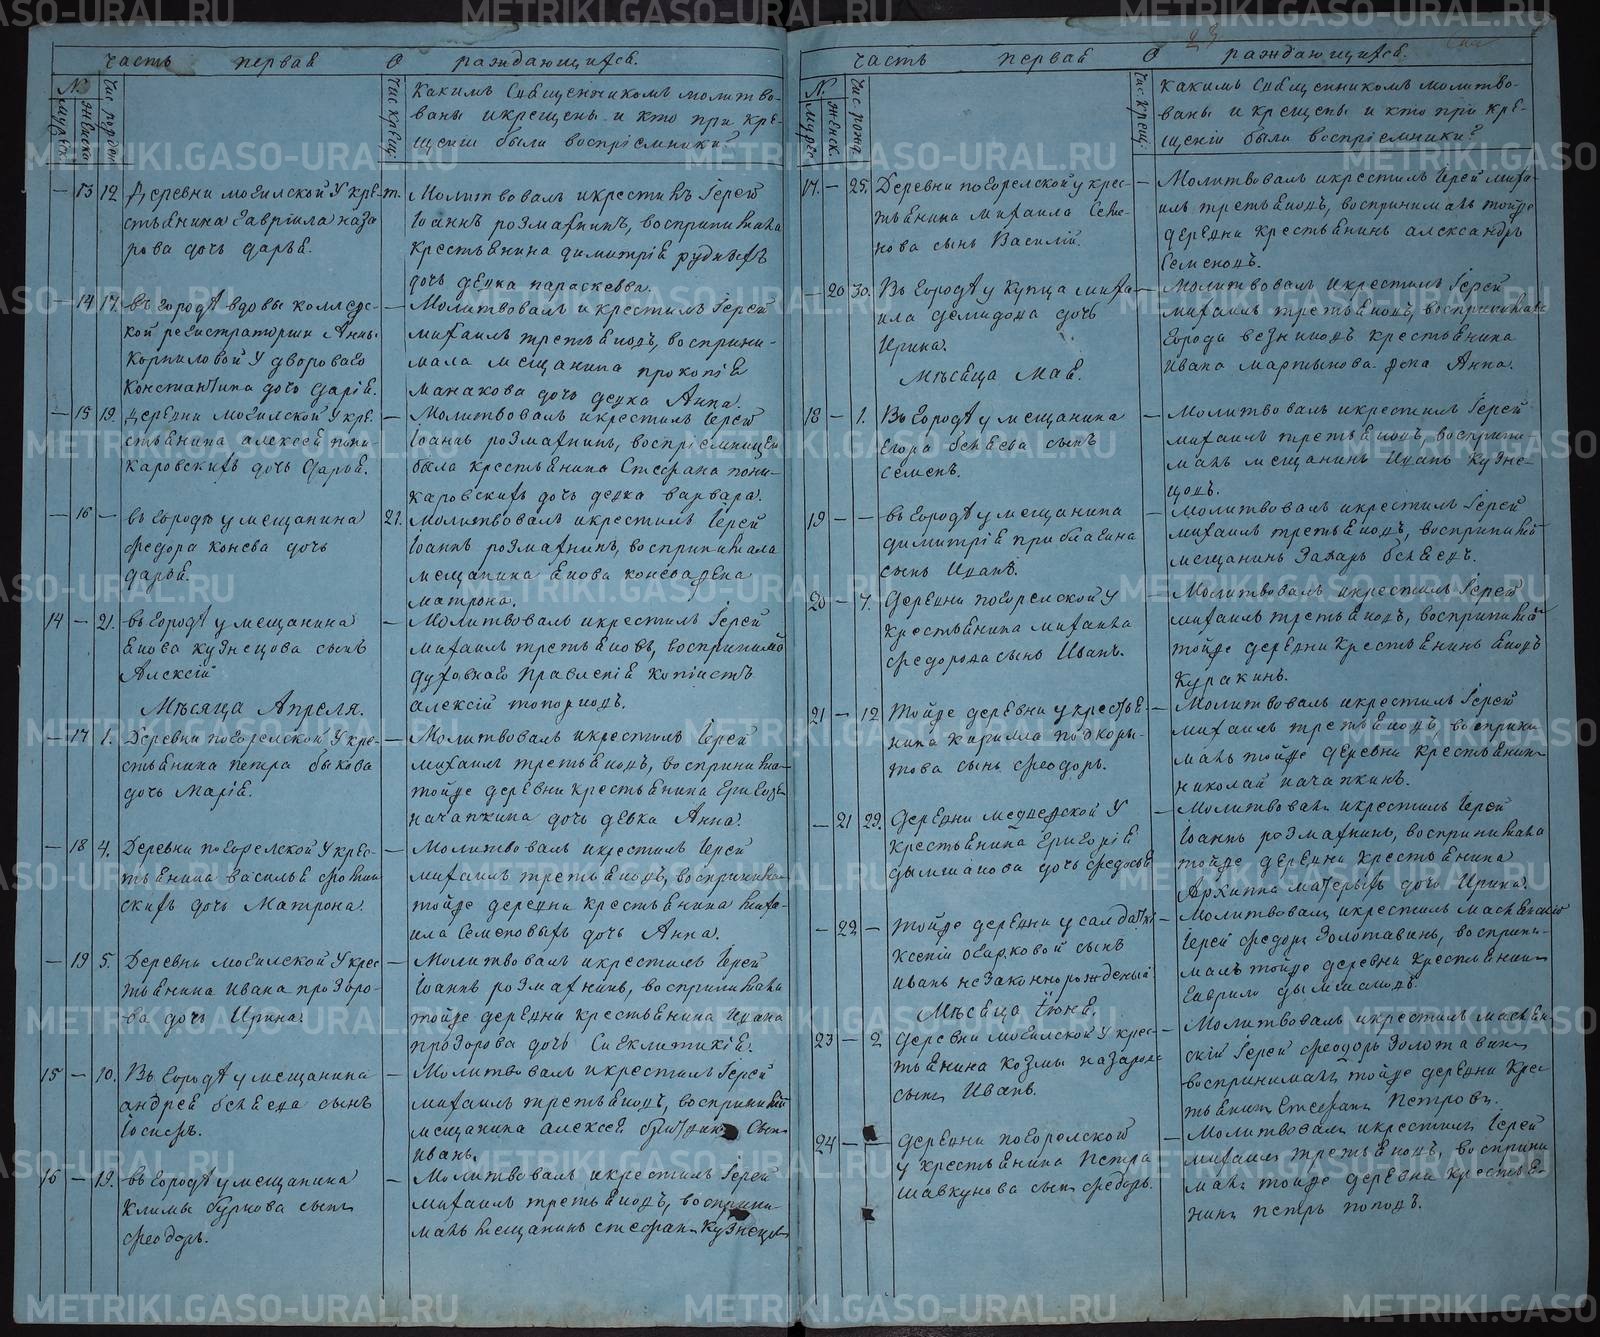 Часть первая О раждающихся.
№
мужск.
женска
Чис. рожден
Чис. крещ:
Какимъ священникомъ молитво-
ваны и крещены и кто при кре-
щеніи были воспріемники?
— 13 12 Деревни могилской у кре-
стьянина гавріила наза
рова дочь дарья.
т. Молитвовалъ и крестилъ Іерей
Іоаннъ розмахнинъ, воспринимала
крестьянина димитрія рудныхъ
дочь девка параскевва.
— 14 17. въ городѣ вдовы коллеж-
ской регистраторши Анны
Корниловой у двороваго
Константина дочь Дарія.
— Молитвовалъ и крестилъ Іерей
михаилъ третьяковъ, восприни-
мала мещанина прокопія
манакова дочь девка Анна.
— 15 19. деревни могилской у кре-
стьянина алексея пони-
каровскихъ дочь Дарья.
— Молитвовалъ и крестилъ Іерей
Іоаннъ розмахнинъ, воспріемницей
была крестьянина Стефана пони-
каровскихъ дочь девка варвара.
— 16 — въ городѣ у мещанина
федора конева дочь
дарья.
21. Молитвовалъ и крестилъ Іерей
Іоаннъ розмахнинъ, воспринимала
мещанина якова конева жена
матрона.
14 — 21. въ городѣ у мещанина
якова кузнецова сынъ
Алексій
— Молитвовалъ и крестилъ Іерей
михаилъ третьяковъ, воспринима
духовнаго правленія копіистъ
алексій топорковъ.
Мѣсяца Апреля.
— 17 1. Деревни погорелской у кре-
стьянина петра быкова
дочь Марія.
— Молитвовалъ и крестилъ Іерей
михаилъ третьяковъ, воспринима-
тойже деревни крестьянина
начапкина дочь девка Анна.
— 18 4. Деревни погорелской у крес-
тьянина василья
скихъ дочь Матрона.
— Молитвовалъ и крестилъ Іерей
михаилъ третьяковъ, воспринима-
тойже деревни крестьянина миха-
ила Семеновыхъ дочь Анна.
— 19 5. Деревни могилской у крес
тьянина ивана прозоро-
ва дочь Ирина.
— Молитвовалъ и крестилъ Іерей
Іоаннъ розмахнинъ, воспринимала
тойже деревни крестьянина Ивана
прозорова дочь Сиклитикія.
15 — 10. Въ городѣ у мещанина
андрея беляева сынъ
Іосифъ.
— Молитвовалъ и крестилъ Іерей
михаилъ третьяковъ, воспринимал
мещанина алексея сынъ
иванъ.
16 — 19. въ городѣ у мещанина
Климы буркова сынъ
феодоръ.
— Молитвовалъ и крестилъ Іерей
михаилъ третьяковъ, восприни-
малъ мещанинъ стефанъ Кузнецовъ
23
Часть первая О раждающихся.
№
мужес
женск.
Чис. рожд.
Чис. крещ.
Какимъ священникомъ молитво-
ваны и крещены и кто при кре-
щеніи были воспріемники?
17. — 25. Деревни погорелской у крес-
тьянина михаила Семе-
нова сынъ Василій.
— Молитвовалъ и крестилъ Іерей миха-
илъ третьяковъ, воспринималъ тойже
деревни крестьянинъ александръ
Семеновъ.
— 20 30. Въ городѣ у купца миха
ила демидова дочь
Ирина.
— Молитвовалъ и крестилъ Іерей
михаилъ третьяковъ, воспринимала
города крестьянина
ивана мартынова жена Анна.
Мѣсяца Мая.
18 — 1. Въ городѣ у мещанина
Егора беляева сынъ
семенъ.
— Молитвовалъ и крестилъ Іерей
михаилъ третьяковъ, восприни-
малъ мещанинъ Иванъ Кузне-
цовъ.
19 — — въ городѣ у мещанина
димитрія прибавкина
сынъ Иванъ.
— Молитвовалъ и крестилъ Іерей
михаилъ третьяковъ, воспринимал
мещанинъ Захаръ беляевъ.
20 — 7. деревни погорелской у
крестьянина михаила
федорова сынъ Иванъ.
— Молитвовалъ и крестилъ Іерей
михаилъ третьяковъ, воспринимал
тойже деревни Крестьянинъ яковъ
Куракинъ.
21 — 12 Тойже деревни у крестья-
нина кирилла подкоры-
това сынъ феодоръ.
— Молитвовалъ и крестилъ Іерей
михаилъ третьяковъ, восприни
малъ тойже деревни крестьянин
николай начапкинъ.
— 21 22. Деревни медведской у
крестьянина григорія
дымшакова дочь федосья
— Молитвовалъ и крестилъ Іерей
Іоаннъ розмахнинъ, воспринимала
тойже деревни крестьянина
Архиппа дочь Ирина.
— 22 — тойже деревни у салдатки
ксеніи огарковой сынъ
иванъ незаконнорожденый
— Молитвовалъ и крестилъ маслянскій
Іерей федоръ Золотавинъ, восприни-
малъ тойже деревни крестьянин
гаврило дымшаковъ.
Мѣсяца Іюня.
23 — 2 деревни могилской у крес-
тьянина козмы назарова
сынъ Иванъ.
— Молитвовалъ и крестилъ маслян-
скій Іерей феодоръ Золотавинъ
воспринималъ тойже деревни крес
тьянинъ Стефанъ Петровъ.
24 — — деревни погорелской
у крестьянина петра
шавкунова сынъ федоръ.
— Молитвовалъ и крестилъ Іерей
михаилъ третьяковъ, восприни
малъ тойже деревни крестья-
нинъ петръ поповъ.
METRIKI.GASO-URAL.RU